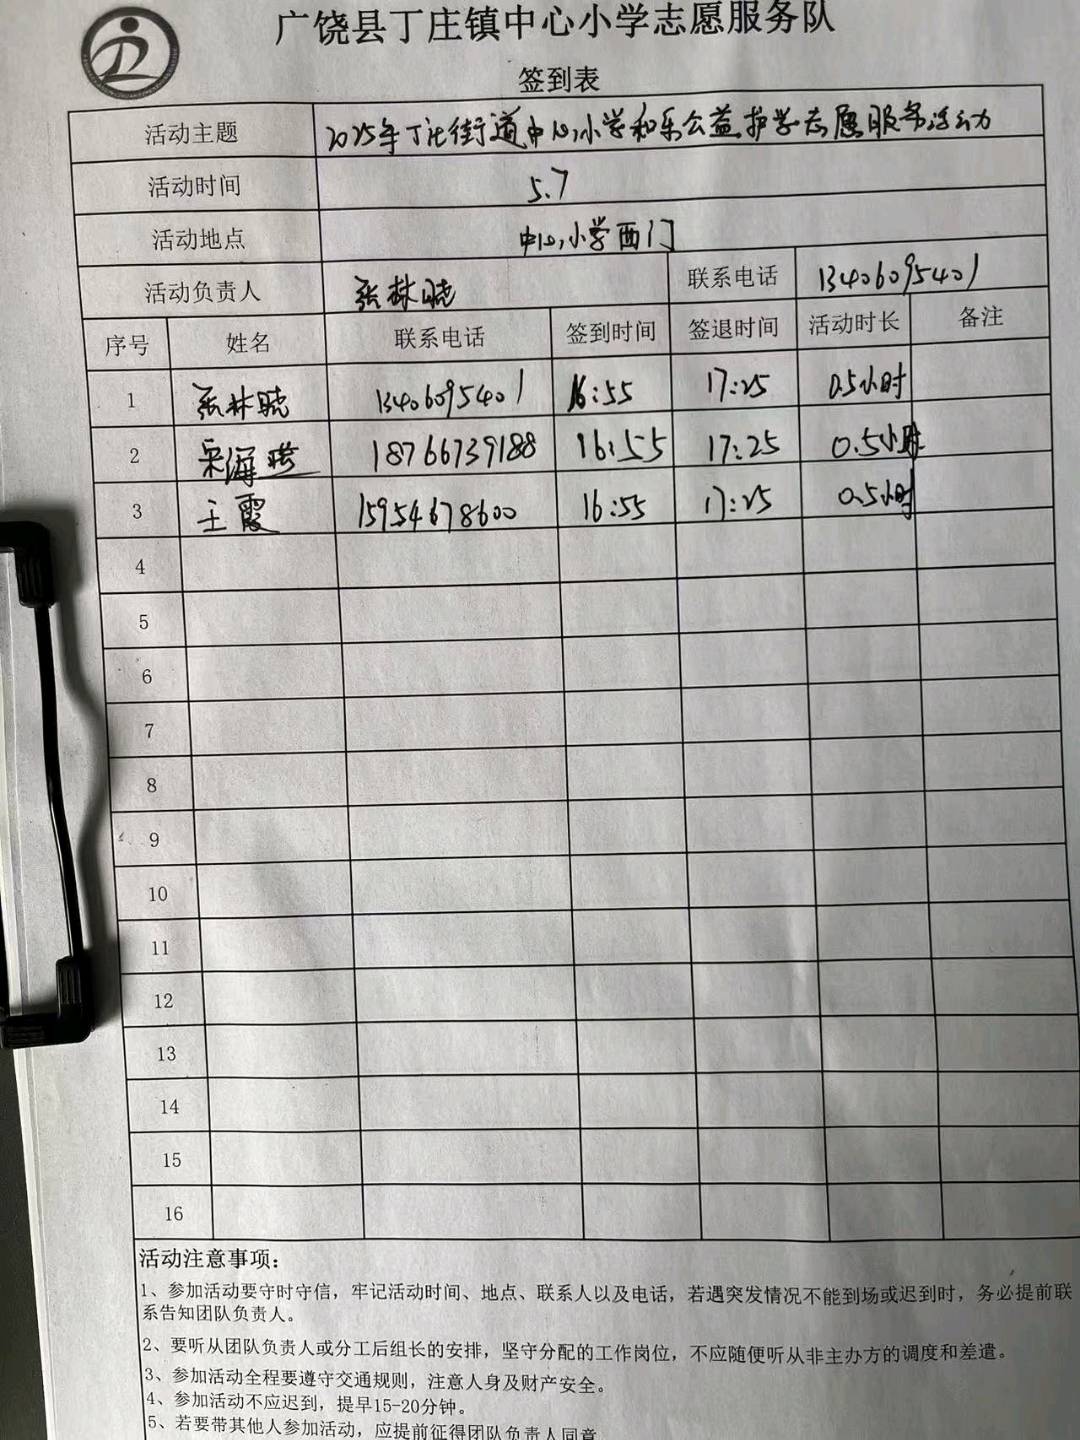 广饶县丁庄镇中心小学志愿服务队
签到表
活动主题 2025年丁庄街道中心小学和乐公益护学志愿服务活动
活动时间 5.7
活动地点 中心小学西门
活动负责人 张林晓 联系电话 13406095401
序号 姓名 联系电话 签到时间 签退时间 活动时长 备注
1 张林晓 13406095401 16:55 17:25 0.5小时
2 18766739188 16:55 17:25 0.5小时
3 王霞 15954678600 16:55 17:25 0.5小时
4
5
6
7
8
9
10
11
12
13
14
15
16
活动注意事项：
1、参加活动要守时守信，牢记活动时间、地点、联系人以及电话，若遇突发情况不能到场或迟到时，务必提前联
系告知团队负责人。
2、要听从团队负责人或分工后组长的安排，坚守分配的工作岗位，不应随便听从非主办方的调度和差遣。
3、参加活动全程要遵守交通规则，注意人身及财产安全。
4、参加活动不应迟到，提早15-20分钟。
5、若要带其他人参加活动，应提前征得团队负责人同意